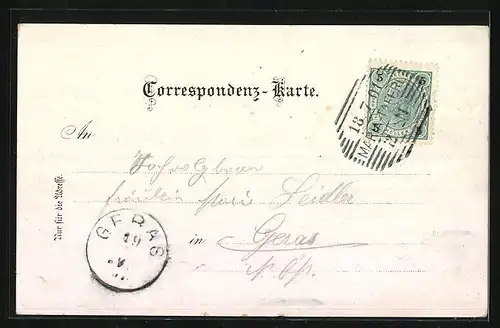 5
18 7 01
MARIA TAFERL
Correspondenz-Karte.
An
Wohlgeboren
Fräulein Marie Seidler
in Geras
N. Oe.
Nur für die Adresse.
GERAS
19